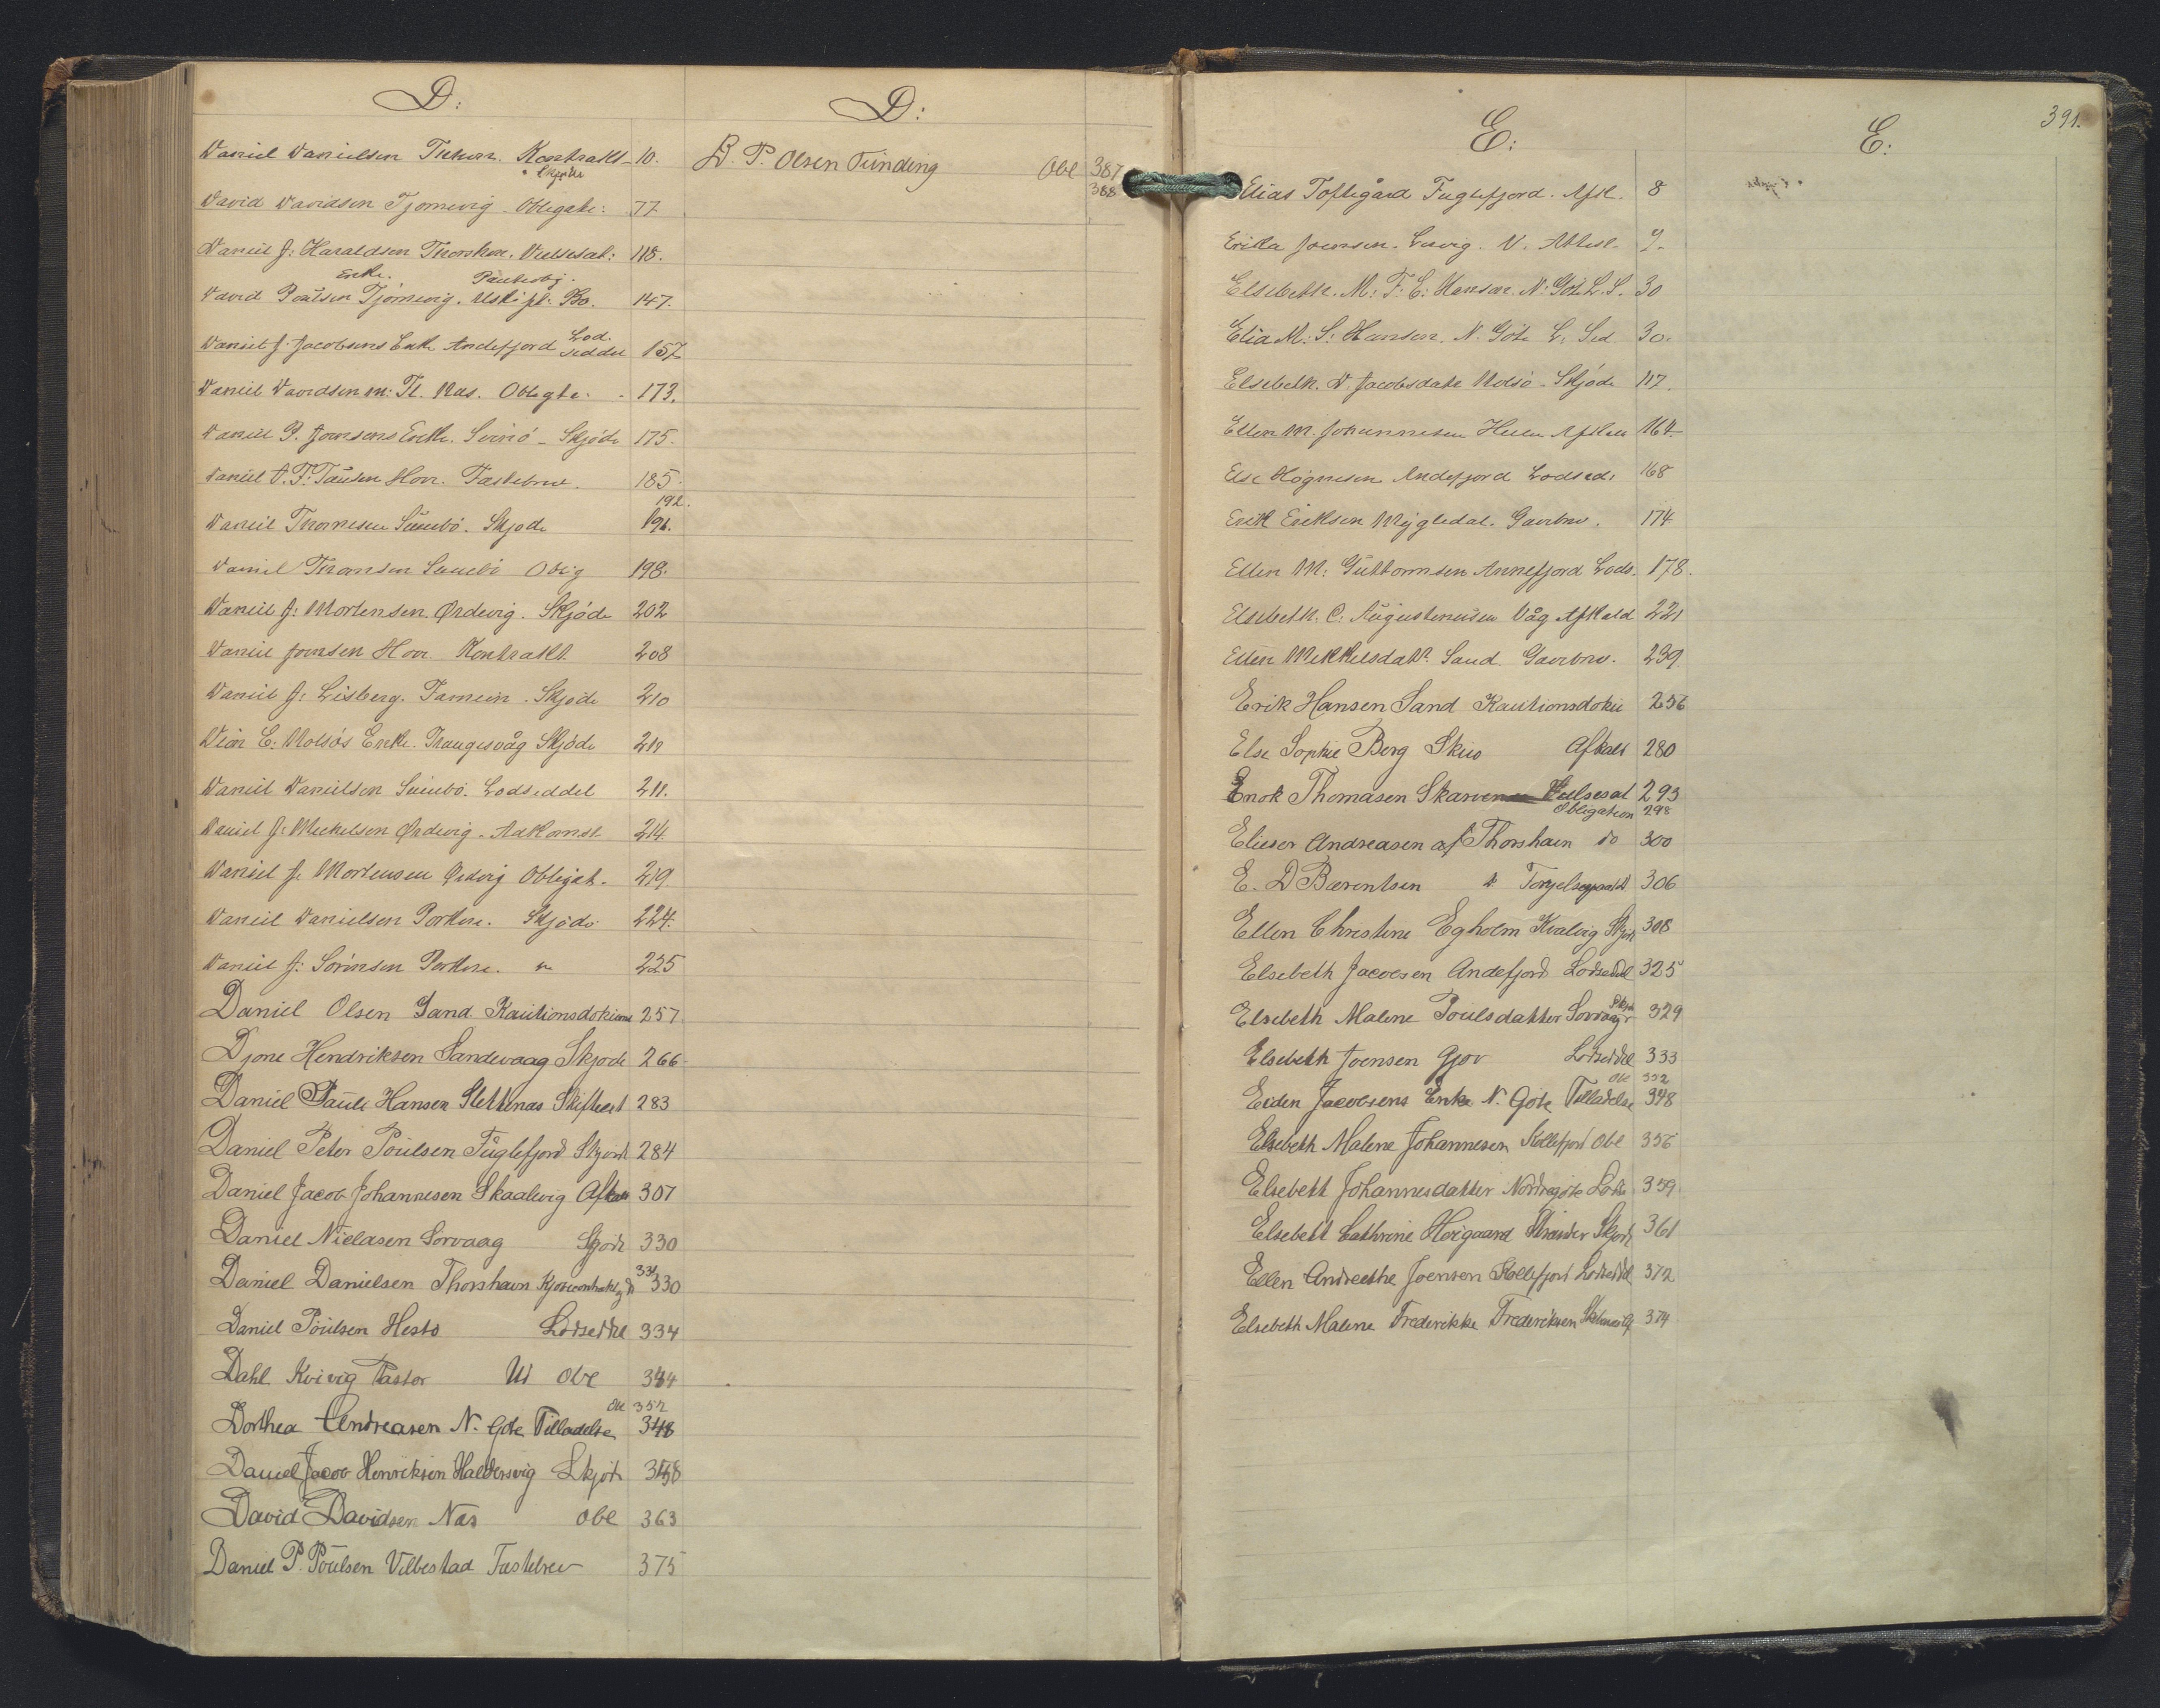 D:
Daniel Danielsen Kontrakt 10.
" Skjøde
David Davidsen Tjørnevig Obligati: 77
Daniel J: Haraldsen Thorshavn. Vielsesat: 118.
Enke.
David Poulsen Tjørnevig. Uskift. Bo. 147.
Daniel J. Jacobsens Enke Andefjord Lod.seddel 157
Daniel Davidsen m: Fl. Nas. Obligti. 173.
Daniel P. Joensens Enke. Svinö - Skjöde 175.
Daniel Hov. Fæstebrev. 185.
192.
Daniel Thomsen Sumbö. Skjøde 191.
Daniel Thomsen Sumbö Oblig 198.
Daniel J: Mortensen Ørdevig. Skjöde 202
Daniel Joensen Hov. Kontrakt. 208
Daniel J: Lisberg. Famien. Skjøde 210
Enke. Trangisvåg Skjöde 211
Daniel Danielsen Sumbö. Lodseddel 211.
Daniel J: Mickelsen Ørdevig. Adkomst. 214.
Daniel J: Mortensen Ørdevig Obligat. 219
Daniel Danielsen Porkere. Skjöde 224.
Daniel J: Sørensen Porkere. " 225
Daniel Olsen Sand Kautionsdokum 257
Djone Hendriksen Sandevaag Skjøde 266
Daniel Pauli Hansen Slettenas 283
Daniel Peter Poulsen Fuglefjord Skjøde 284
Daniel Jacob Johannesen Skaalevig Afkald 307
Daniel Nielasen Sorvaag Skjøde 330
331
Daniel Danielsen Thorshavn Kjøbecontrakt 330
Daniel Poulsen Hesto Lodseddel 334
Dahl Kvivig Pastor Ud Obl 344
Obl 352
Dorthea Andreasen N. Gøte Tilladelse 348
Daniel Jacob Henriksen Haldersvig Skjøde 358
David Davidsen Nas Obl 363
Daniel P. Poulsen Velbestad Fæstebrev 375
D:
D. P. Olsen Funding Obl 387
388
E:
Elias Toftegård Fuglefjord. Afk. 8
Erika Joensen. V. Attest. 9.
Elsebeth. M: F: E: Hansen. N: Göte L. S. 30
Elia M: S: Hansen. N. Göte L. Sed. 30.
Elsebeth. D. Jacobsdatr Nolsö. Skjöde 117.
Ellen M. Johannesen Afkald 164
Else Högnesen Andefjord Lodsed. 168
Erik Eriksen Mygledal. Gavebrev. 174
Ellen M: Guttormsen Annefjord Lods. 178.
Elsebeth. C. Augustinussen Våg Afkald 221
Ellen Mikkelsdatr. Sand Gavebrev. 239
Erik Hansen Sand Kautionsdoku 256
Else Sophie Berg Skuo Afkald 280
Enok Thomasen Skarven Vielsesat 293
Obligation 298
Elieser Andreasen af Thorshavn do 300
E. D Bærentsen 306
Ellen Christine Egholm Kvalvig Skjøde 308
Elsebeth Jacobsen Andefjord Lodseddel 325
Elsebeth Malene Poulsdatter Sorvaag Skjøde 329
Elsebeth Joensen Gjov Lodseddel 333
Obl 352
Eiden Jacobsens Enke N. Gøte Tilladelse 348
Elsebeth Malene Johannesen Kollefjord Obl 356
Elsebeth Johannesdatter Nordregøte Lods. 359
Elsebeth Cathrine Høigaard Strander Skjøde 361
Ellen Andreethe Joensen Kollefjord Lodseddel 372
Elsebeth Malene Frederikke Frederiksen 374
E:
391.